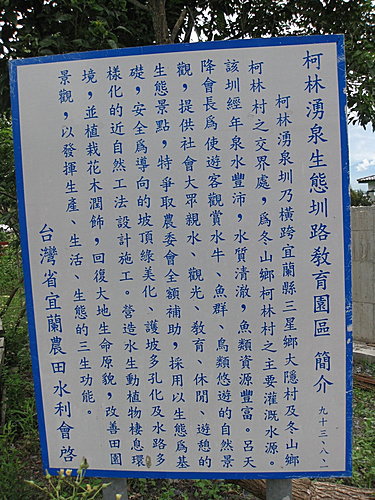 柯林湧泉生態圳路教育園區 簡介 九十三、八、一
柯林湧泉圳乃橫跨宜蘭縣三星鄉大隱村及冬山鄉
柯林村之交界處，為冬山鄉柯林村之主要灌溉水源。
該圳經年泉水豐沛，水質清澈，魚類資源豐富。呂天
降會長為使遊客觀賞水牛、魚群、鳥類悠遊的自然景
觀，提供社會大眾親水、觀光、教育、休閒、遊憩的
生態景點，特爭取農委會全額補助，採用以生態為基
礎，安全為導向的坡頂綠美化、護坡多孔化及水路多
樣化的近自然工法設計施工。營造水生動植物棲息環
境，並植栽花木潤飾，回復大地生命原貌，改善田園
景觀，以發揮生產、生活、生態的三生功能。
台灣省宜蘭農田水利會啓